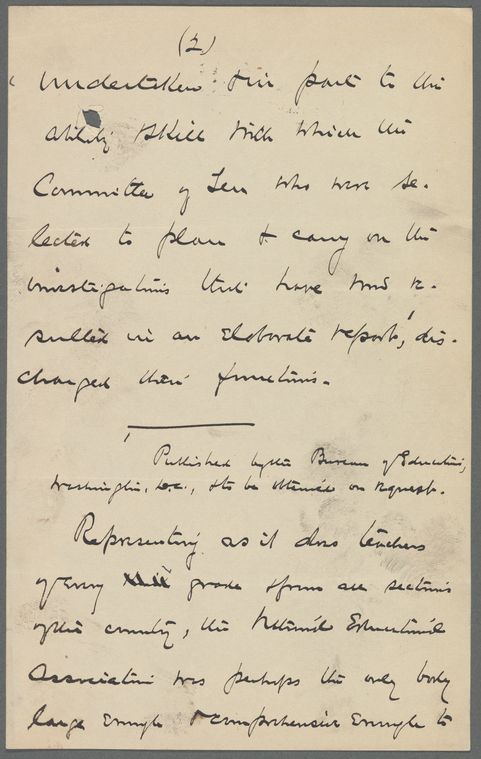 (2)
undertaken & in part to the
ability & skill with which the
Committee of Ten who were se-
lected to plan & carry on the
investigations that have now re-
sulted in an elaborate report,¹ dis-
charged their functions.
¹ Published by the Bureau of Education,
Washington, D.C., & to be obtained on request.
Representing as it does teachers
of every grade & from all sections
of the country, the National Educational
Association was perhaps the only body
large enough & comprehensive enough to